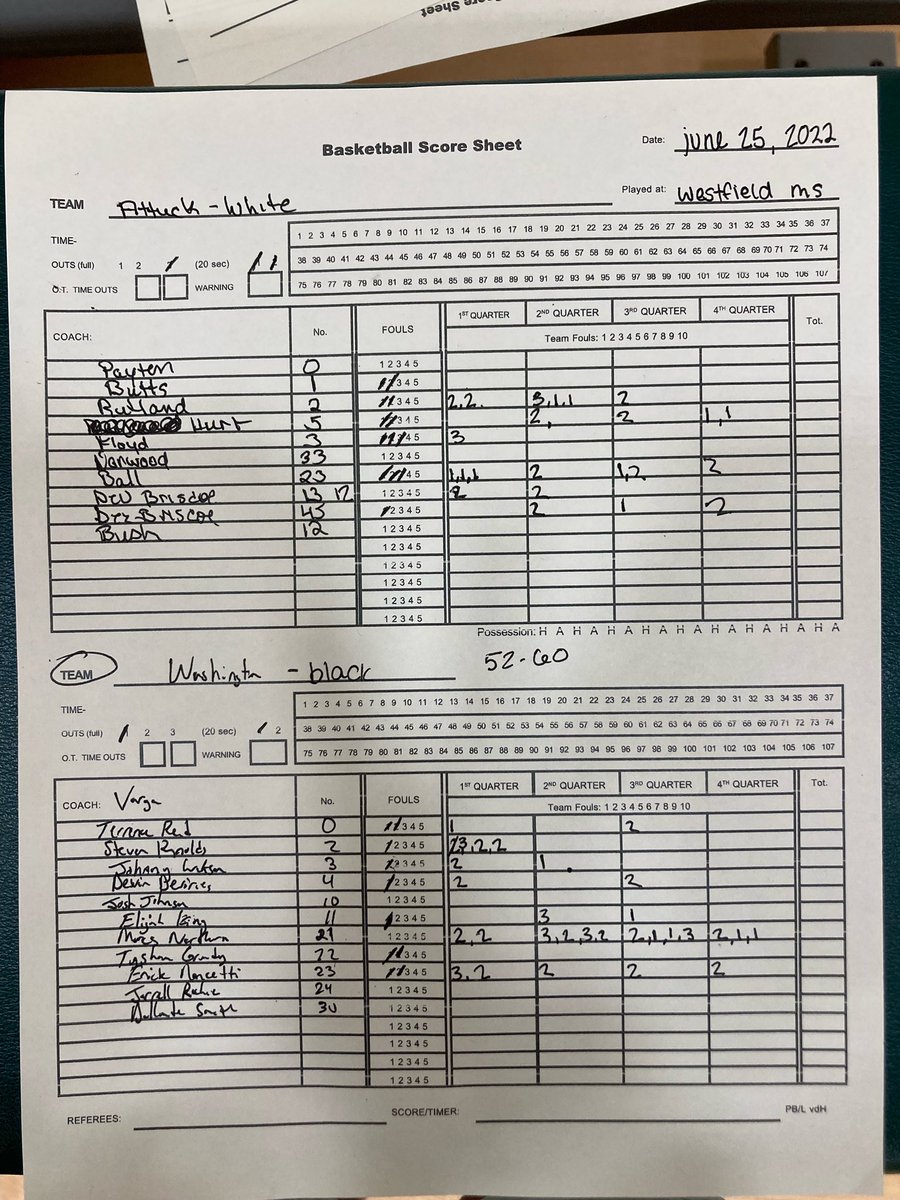 Score Sheet
Basketball Score Sheet
Date: june 25, 2022
TEAM Attuck - White
Played at: Westfield ms
TIME-
1 2 3 4 5 6 7 8 9 10 11 12 13 14 15 16 17 18 19 20 21 22 23 24 25 26 27 28 29 30 31 32 33 34 35 36 37
OUTS (full) 1 2 (20 sec)
38 39 40 41 42 43 44 45 46 47 48 49 50 51 52 53 54 55 56 57 58 59 60 61 62 63 64 65 66 67 68 69 70 71 72 73 74
O.T. TIME OUTS WARNING
75 76 77 78 79 80 81 82 83 84 85 86 87 88 89 90 91 92 93 94 95 96 97 98 99 100 101 102 103 104 105 106 107
COACH: No. FOULS 1ST QUARTER 2ND QUARTER 3RD QUARTER 4TH QUARTER Tot.
Team Fouls: 1 2 3 4 5 6 7 8 9 10
Payton 0 1 2 3 4 5
Butts 1 3 4 5
Rutland 2 3 4 5 2,2 3,1,1 2
Hurt 5 3 4 5 2, 2 1,1
Floyd 3 4 5 3
Norwood 33 1 2 3 4 5
Ball 23 4 5 1,1,1 2 1,2 2
Briscoe 13 12 1 2 3 4 5 2 2
Briscoe 43 2 3 4 5 2 1 2
Bush 12 1 2 3 4 5
1 2 3 4 5
1 2 3 4 5
1 2 3 4 5
1 2 3 4 5
1 2 3 4 5
Possession: H A H A H A H A H A H A H A H A H A
52-60
TEAM Washington - black
TIME-
1 2 3 4 5 6 7 8 9 10 11 12 13 14 15 16 17 18 19 20 21 22 23 24 25 26 27 28 29 30 31 32 33 34 35 36 37
OUTS (full) 2 3 (20 sec) 2
38 39 40 41 42 43 44 45 46 47 48 49 50 51 52 53 54 55 56 57 58 59 60 61 62 63 64 65 66 67 68 69 70 71 72 73 74
O.T. TIME OUTS WARNING
75 76 77 78 79 80 81 82 83 84 85 86 87 88 89 90 91 92 93 94 95 96 97 98 99 100 101 102 103 104 105 106 107
COACH: Varga No. FOULS 1ST QUARTER 2ND QUARTER 3RD QUARTER 4TH QUARTER Tot.
Team Fouls: 1 2 3 4 5 6 7 8 9 10
Reid 0 3 4 5 1 2
Steven 2 2 3 4 5 3,2,2
Johnny 3 2 3 4 5 2 1
Devin 4 2 3 4 5 2 2
Josh Johnson 10 1 2 3 4 5
Elijah 11 2 3 4 5 3 1
Northern 21 1 2 3 4 5 2,2 3,2,3,2 2,1,1,3 2,1,1
22 3 4 5
Erick 23 3 4 5 3,2 2 2 2
24 1 2 3 4 5
Smith 30 1 2 3 4 5
1 2 3 4 5
1 2 3 4 5
1 2 3 4 5
1 2 3 4 5
REFEREES: SCORE/TIMER: PB/L vdH